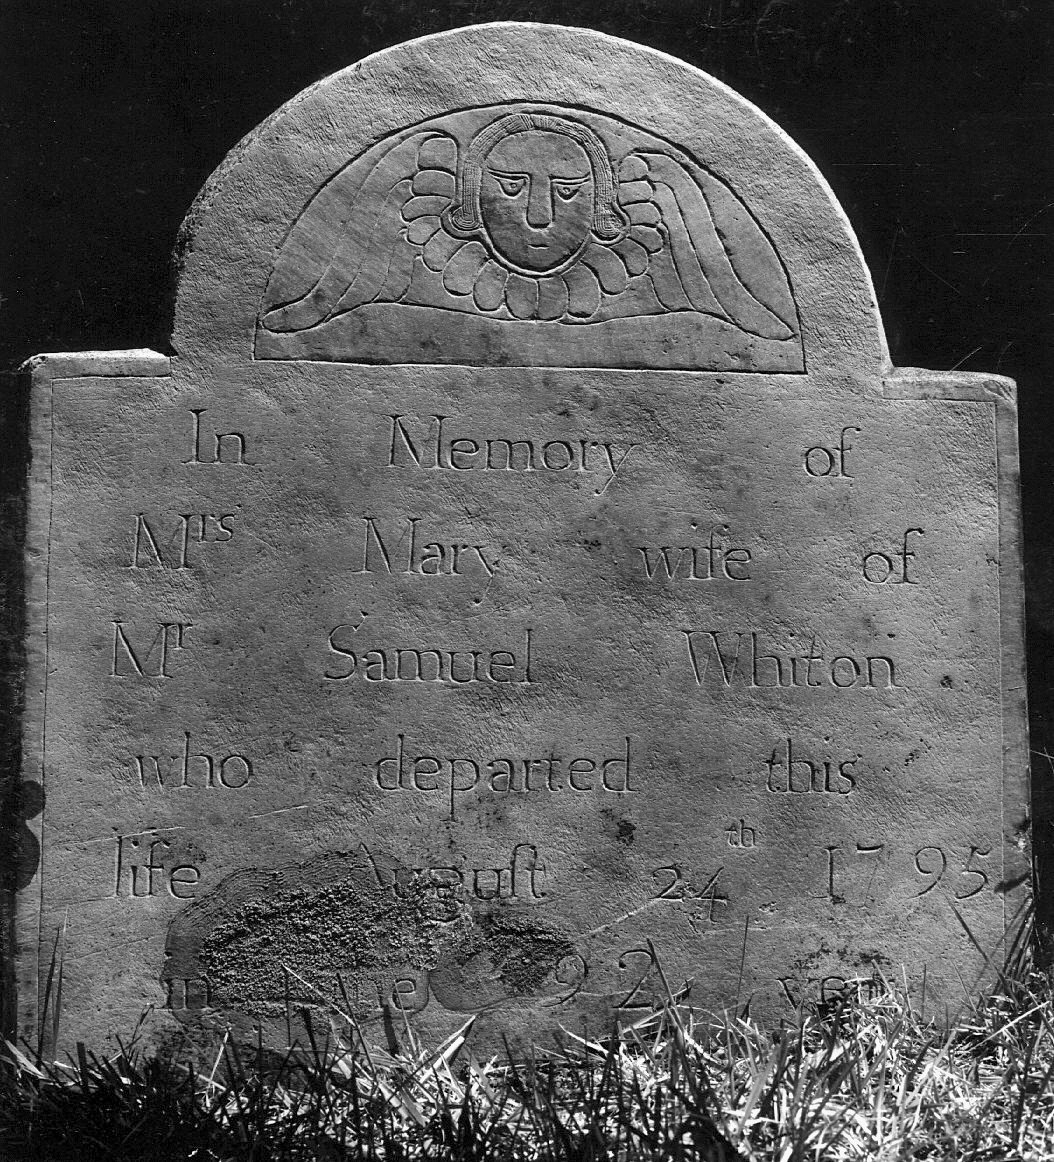 In Memory of
Mrs Mary wife of
Mr Samuel Whiton
who departed this
life Auguſt 24th 1795
in the 92 year